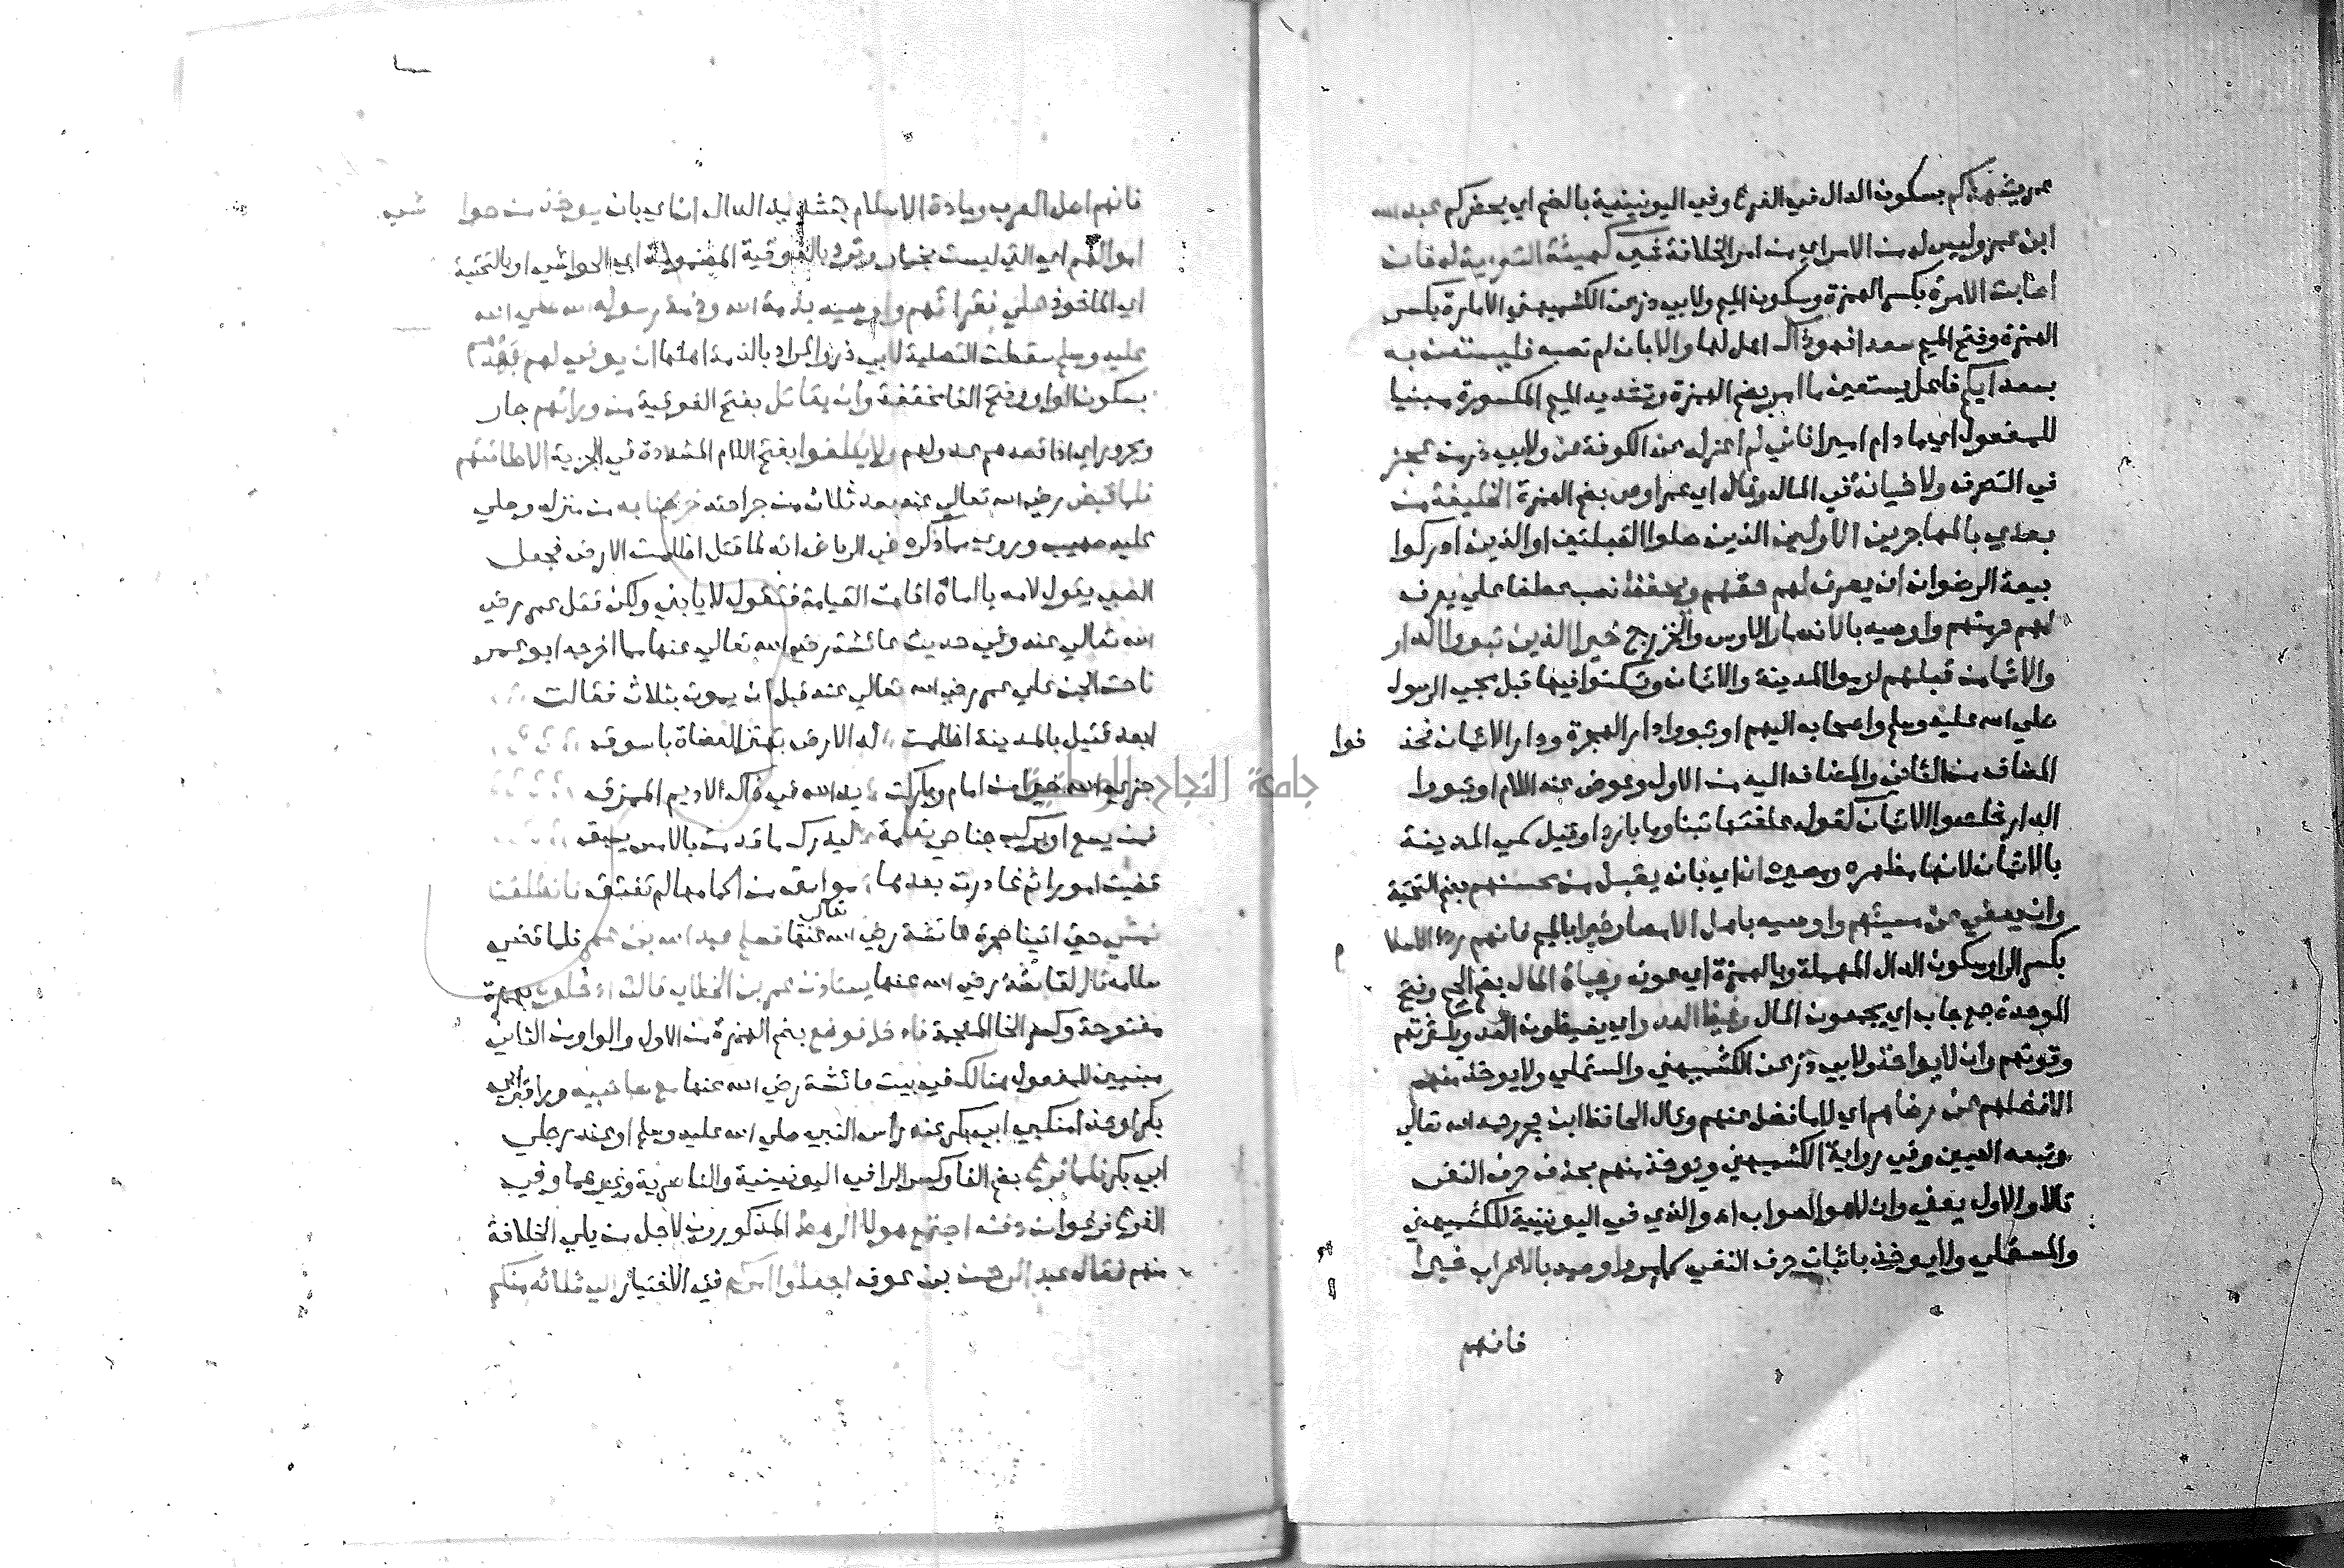 عمر يشهدكم بسكون الدال في الفرع وفي اليونينية بالضم اي يحضركم عبد الله
ابن عمر وليس له من الامر اي من امر الخلافة شي كهيئة التعزية له فان
اصابت الامرة بكسر الهمزة وسكون الميم ولابي ذر عن الكشميهني الامارة بكسر
الهمزة وفتح الميم سعدا فهو ذاك اهل لها والا بان لم تصبه فليستعن به
بسعد ايكم فاعل يستعين ما امر بضم الهمزة وتشديد الميم المكسورة مبنيا
للمفعول اي ما دام اميرا فاني لم اعزله عن الكوفة عن ولابي ذر من عجز
في التصرف ولا خيانة في المال وقال اي عمر اوصي بضم الهمزة الخليفة من
بعدي بالمهاجرين الاولين الذين صلوا القبلتين او الذين ادركوا
بيعة الرضوان ان يعرف لهم حقهم ويحفظ نصب عطفا علي يعرف
لهم حرمتهم واوصيه بالانصار الاوس والخزرج خيرا الذين تبووا الدار
والايمان من قبلهم لزموا المدينة والايمان وتمكنوا فيها قبل مجي الرسول
صلي الله عليه وسلم واصحابه اليهم او تبووا دار الهجرة ودار الايمان فحذ فوا
المضاف من الثاني والمضاف اليه من الاول وعوض عنه اللام او تبووا
الدار واخلصوا الايمان كقوله علفتها تبنا وما باردا وقيل سمي المدينة
بالايمان لانها مظهره ومصيره ان اي بان يقبل من محسنهم بضم التحتية
وان يعفي عن مسيئهم واوصيه باهل الامصار خيرا بالميم فانهم ردء الاسلا م
بكسر الراء وسكون الدال المهملة وبالهمزة اي عون وجباة المال بضم الجيم وفتح
الموحدة جمع جاب اي يجمعون المال وغيظ العدو اي يغيظون العدو بكثرتهم
وقوتهم وان لا يواخذ ولابي ذر عن الكشميهني والمستملي ولا يوخذ منهم
الا فضلهم عن رضاهم اي الا ما فضل عنهم وقال الحافظ ابن حجر رحمه الله تعالي
وتبعه العيني وفي رواية الكشميهني ويوخذ منهم بحذف حرف النفي
قالا والاول يعني وان لا هو الصواب اه والذي في اليونينية للكشميهني
والمستملي ولا يوخذ باثبات حرف النفي كما مر واوصيه بالاعراب خيرا
فانهم
فانهم اصل العرب ومادة الاسلام بتشديد الدال ان اي بان يوخذ من حوا شي
اموالهم اي التي ليست بخيار وترد بالفوقية المضمومة اي الحواشي او بالتحتية
اي الماخوذ علي فقرائهم واوصيه بذمة الله وذمة رسوله الله صلي الله
عليه وسلم سقطت التصلية لابي ذر والمراد بالذمة اهلها ان يوفي لهم بعهدهم
بسكون الواو وفتح الفا مخففة وان يقاتل بفتح الفوقية من ورائهم جار
ومجرور اي اذا قصدهم عدو لهم ولا يكلفوا بفتح اللام المشددة في الجزية الا طاقتهم
فلما قبض رضي الله تعالي عنه بعد ثلاث من جراحته خرجنا به من منزله وصلي
عليه صهيب وروي مما ذكره في الرياض انه لما قتل اظلمت الارض فجعل
الصبي يقول لامه يا اماه اقامت القيامة فتقول لا يا بني ولكن قتل عمر رضي
الله تعالي عنه وفي حديث عائشة رضي الله تعالي عنها مما اخرجه ابو عمر
ناحت الجن علي عمر رضي الله تعالي عنه قبل ان يموت بثلاث فقالت
ابعد قتيل بالمدينة اظلمت له الارض تهتز العضاة باسوق
جزي الله خيرا من امام وباركت يد الله في ذاك الاديم الممزق
فمن يسع او يركب جناحي نعامة ليدرك ما قدمت بالامس يسبق
قضيت امورا ثم غادرت بعدها بوايق من اكمامها لم تفتق فانطلقنا
نمشي حتي اتينا حجرة عائشة رضي الله تعالي عنها فسلم عبد الله بن عمر فلما قضي
سلامه قال لعائشة رضي الله عنها يستاذن عمر بن الخطاب قالت ادخلوه بهمزة
مفتوحة وكسر الخا المعجمة فادخل فوضع بضم الهمزة من الاول والواو من الثاني
مبنيين للمفعول هنالك في بيت عائشة رضي الله عنها مع صاحبيه وراء قبر ابي
بكر او عند منكبي ابي بكر عند راس النبي صلي الله عليه وسلم او عند رجلي
ابي بكر فلما فرغ بضم الفا وكسر الرا في اليونينية والناصرية وغيرهما وفي
الفرع فرغوا من دفنه اجتمع هولا الرهط المذكورون لاجل من يلي الخلافة
منهم فقال عبد الرحمن بن عوف اجعلوا امركم في الاختيار الي ثلاثة منكم
جامعة النجاح الوطنية